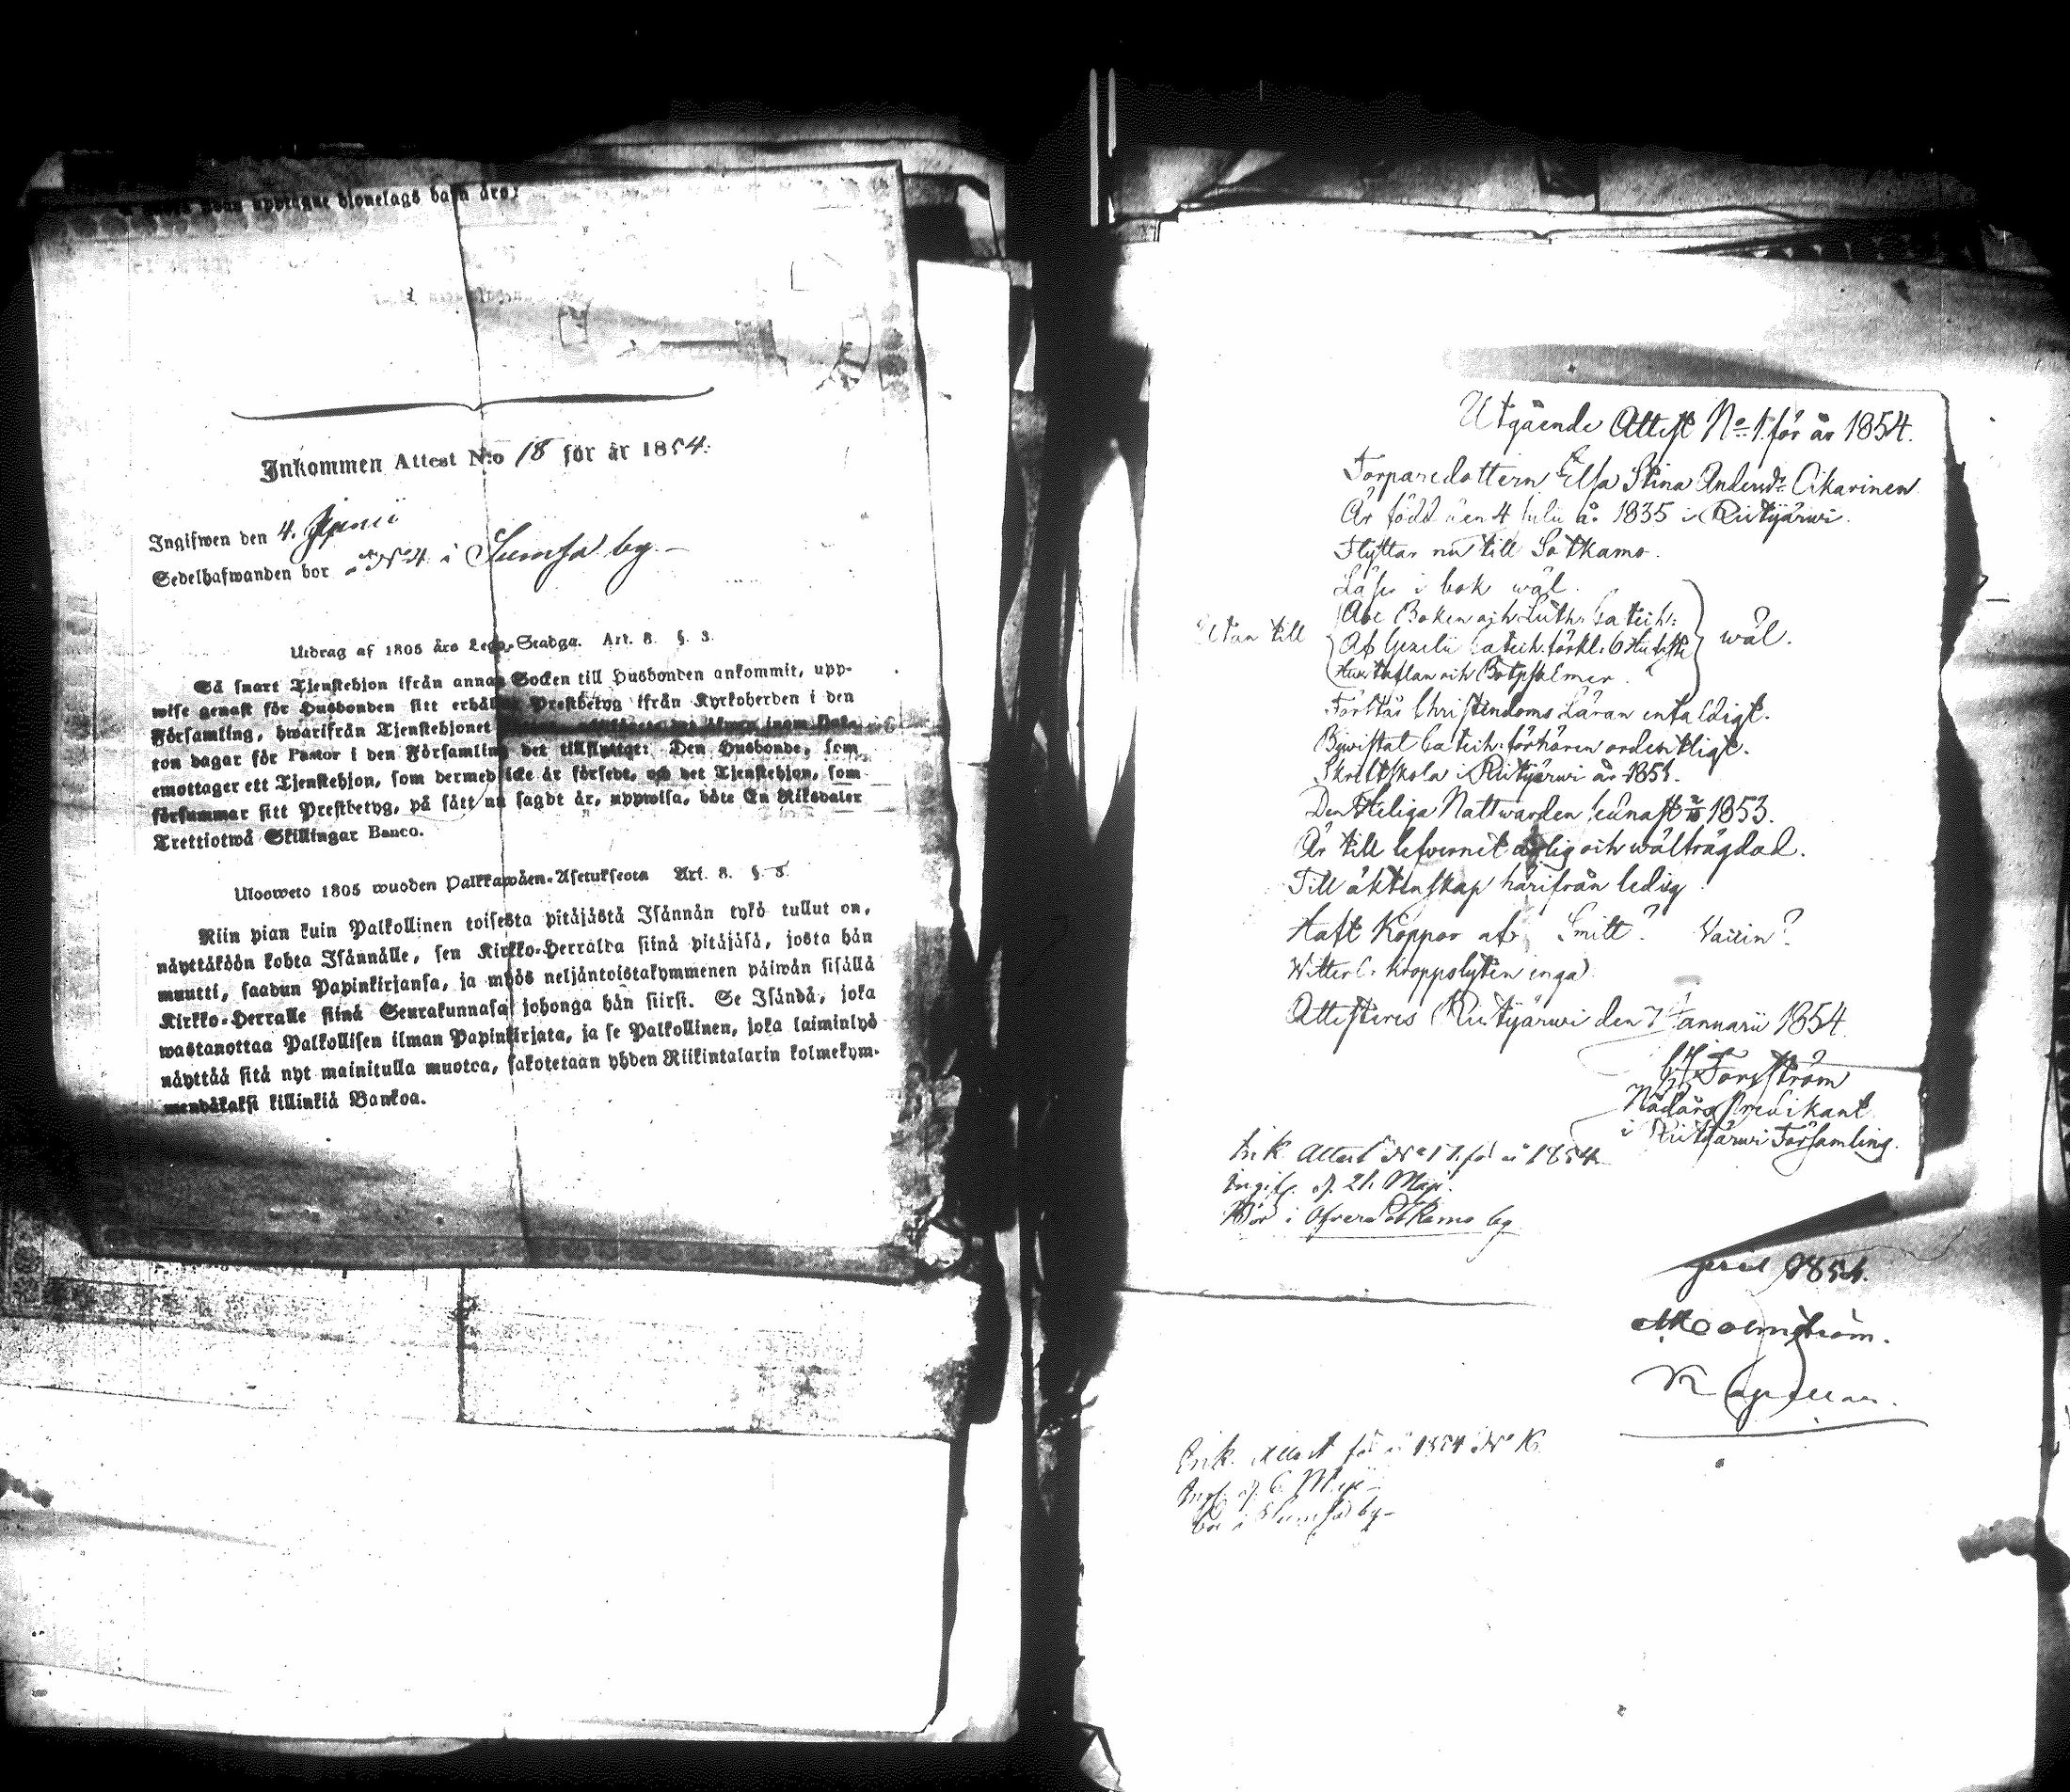 uppdragne hjonelags barn äro;
Inkommen Attest N:o 18 för år 1854.
Ingifwen den 4. Junii
Sedelhafwanden bor N:o 4 i Sumsa by.
Utdrag af 1805 års Lego-Stadga. Art. 8. §. 3.
Så snart Tjenstehjon ifrån annan Socken till Husbonden ankommit, upp-
wise genast för Husbonden sitt erhållna Prestbetyg ifrån Kyrkoherden i den
Församling, hwarifrån Tjenstehjonet
ton dagar för Pastor i den Församling det tillflyttat: Den Husbonde, som
emottager ett Tjenstehjon, som dermed icke är försedt, och det Tjenstehjon, som
försummar sitt Prestbetyg, på sätt nu sagdt är, uppwisa, böte En Riksdaler
Trettiotwå Skillingar Banco.
Ulosweto 1805 wuoden Palkkawäen-Asetuksesta Art. 8. §. 3.
Niin pian kuin Palkollinen toisesta pitäjästä Isännän tykö tullut on,
näyttäköön kohta Isännälle, sen Kirkko-Herralda siinä pitäjäsä, josta hän
muutti, saadun Papinkirjansa, ja myös neljäntoistakymmenen päiwän sisällä
Kirkko-Herralle siinä Seurakunnasa johonga hän siirsi. Se Isändä, joka
wastanottaa Palkollisen ilman Papinkirjata, ja se Palkollinen, joka laiminlyö
näyttää sitä nyt mainitulla muotoa, sakotetaan yhden Riikintalarin kolmekym-
mendäkaksi killinkiä Bankoa.
Utgående Attest N:o 1 för år 1854.
Torparedottern Elsa Stina Andersd:r Oikarinen
Är född den 4 Julii år 1835 i Ristijärwi.
Flyttar nu till Sotkamo.
Läser i bok wäl.
Utan till Abc Boken och Luth: Catech:
Af Gezelii Catech: förkl: 6 Hufst:
Hustaflan och Botpsalmer. wäl.
Förstår Christendoms Läran enfaldigt.
Bewistat Catech: förhören ordentligt.
Skriftskola i Ristijärwi år 1851.
Den Heliga Nattwarden senast 2/10 1853.
Är till lefwernet ärlig och wälfrägdad.
Till äktenskap härifrån ledig.
Haft Koppor af Smitt? Vaccin?
Witterl: Kroppslyten inga.
Attesteres Ristijärwi den 7 Januarii 1854.
Forsström
Nådårs Predikant
i Ristijärwi Församling.
Ink Attest N:o 17. för år 1854.
Ingif. d. 21. Maji.
Bor i Öfvre Sotkamo by
April 1854.
Holmström.
Kapellan.
Ink. Attest för år 1854 N:o 16.
Ingif. d. 6. Maji
bor i Sumsa by